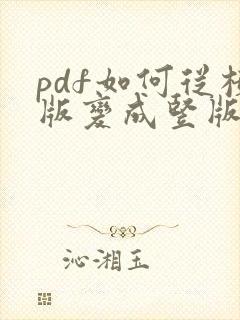 pdf如何從
版變成竪版
沁湘玉